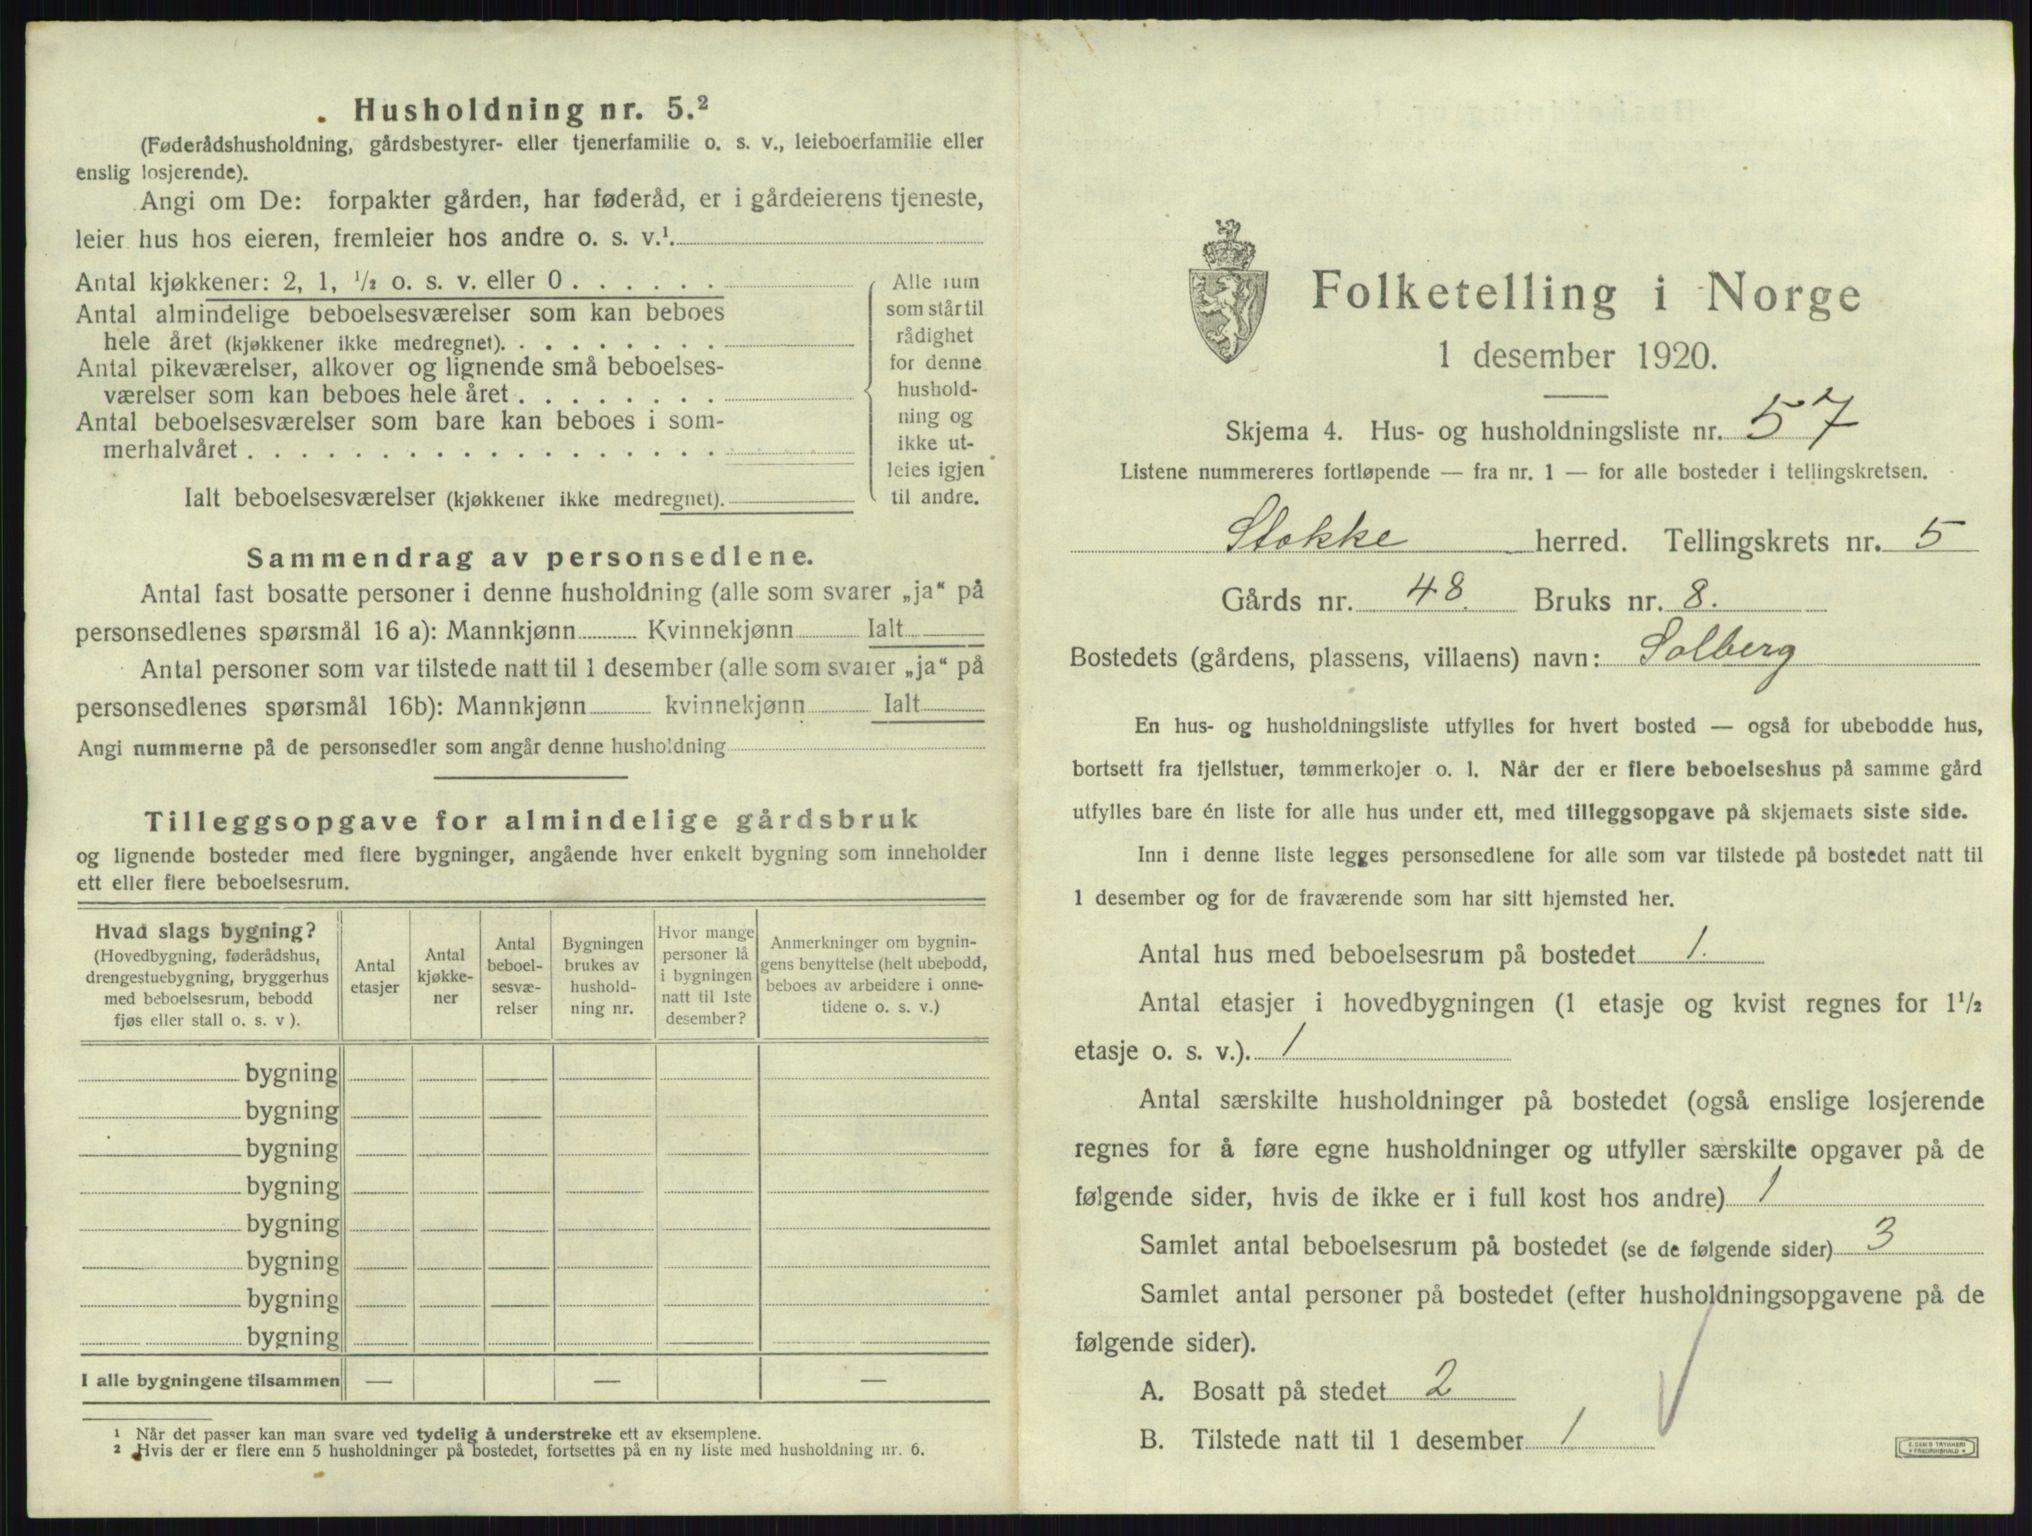 Husholdning nr. 5.²
(Føderådshusholdning, gårdsbestyrer- eller tjenerfamilie o. s. v., leieboerfamilie eller
enslig losjerende).
Angi om De: forpakter gården, har føderåd, er i gårdeierens tjeneste,
leier hus hos eieren, fremleier hos andre o. s. v.¹
Antal kjøkkener: 2, 1, ½ o. s. v. eller 0 . . . . . .
Antal almindelige beboelsesværelser som kan beboes
hele året (kjøkkener ikke medregnet). . . . . . . .
Antal pikeværelser, alkover og lignende små beboelses-
værelser som kan beboes hele året . . . . . . . .
Antal beboelsesværelser som bare kan beboes i som-
merhalvåret . . . . . . . . . . . . . . . . . .
Ialt beboelsesværelser (kjøkkener ikke medregnet).
Alle rum
som står til
rådighet
for denne
hushold-
ning og
ikke ut-
leies igjen
til andre.
Sammendrag av personsedlene.
Antal fast bosatte personer i denne husholdning (alle som svarer „ja“ på
personsedlenes spørsmål 16 a): Mannkjønn Kvinnekjønn Ialt
Antal personer som var tilstede natt til 1 desember (alle som svarer „ja“ på
personsedlenes spørsmål 16b): Mannkjønn kvinnekjønn Ialt
Angi nummerne på de personsedler som angår denne husholdning
Tilleggsopgave for almindelige gårdsbruk
og lignende bosteder med flere bygninger, angående hver enkelt bygning som inneholder
ett eller flere beboelsesrum.
Hvad slags bygning?
(Hovedbygning, føderådshus,
drengestuebygning, bryggerhus
med beboelsesrum, bebodd
fjøs eller stall o. s. v ).
Antal
etasjer
Antal
kjøkke-
ner
Antal
beboel-
sesvæ-
relser
Bygningen
brukes av
hushold-
ning nr.
Hvor mange
personer lå
i bygningen
natt til 1ste
desember?
Anmerkninger om bygnin-
gens benyttelse (helt ubebodd,
beboes av arbeidere i onne-
tidene o. s. v.)
bygning
bygning
bygning
bygning
bygning
bygning
bygning
bygning
I alle bygningene tilsammen — — —
¹ Når det passer kan man svare ved tydelig å understreke ett av eksemplene.
² Hvis der er flere enn 5 husholdninger på bostedet, fortsettes på en ny liste med husholdning nr. 6.
Folketelling i Norge
1 desember 1920.
Skjema 4. Hus- og husholdningsliste nr. 57
Listene nummereres fortløpende — fra nr. 1 — for alle bosteder i tellingskretsen.
Stokke herred. Tellingskrets nr. 5
Gårds nr. 48. Bruks nr. 8.
Bostedets (gårdens, plassens, villaens) navn: Solberg
En hus- og husholdningsliste utfylles for hvert bosted — også for ubebodde hus,
bortsett fra fjellstuer, tømmerkojer o. l. Når der er flere beboelseshus på samme gård
utfylles bare én liste for alle hus under ett, med tilleggsopgave på skjemaets siste side.
Inn i denne liste legges personsedlene for alle som var tilstede på bostedet natt til
1 desember og for de fraværende som har sitt hjemsted her.
Antal hus med beboelsesrum på bostedet 1.
Antal etasjer i hovedbygningen (1 etasje og kvist regnes for 1½
etasje o. s. v.). 1
Antal særskilte husholdninger på bostedet (også enslige losjerende
regnes for å føre egne husholdninger og utfyller særskilte opgaver på de
følgende sider, hvis de ikke er i full kost hos andre) 1
Samlet antal beboelsesrum på bostedet (se de følgende sider) 3
Samlet antal personer på bostedet (efter husholdningsopgavene på de
følgende sider).
A. Bosatt på stedet 2
B. Tilstede natt til 1 desember 1